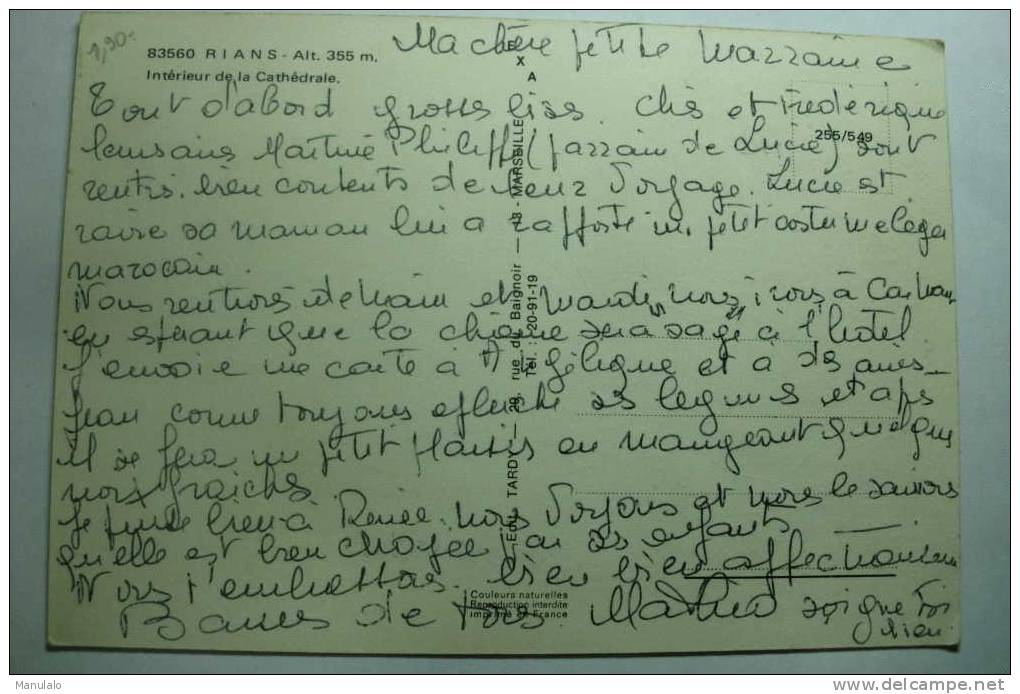 1,90
83560 RIANS - Alt. 355 m.
Intérieur de la Cathédrale.
Ma chère petite Marraine
Tout d'abord grosses bises. et Frédérique
255/549
Philippe (parrain de Lucie) sont
rentrés. bien contents de leur voyage. Lucie est
ravie sa maman lui a rapporté un petit costume
marocain.
Nous rentrons demain et mardi nous irons à
en espérant que la chienne sera sage à l'hotel.
J'envoie une carte à Angélique et à
Jean comme toujours épluche ses légumes et
il se fera un petit plaisir en mangeant quelques
noix fraiches.
Je pense bien à Renée. nous voyons et nous le savions
qu'elle est bien choyée par ses enfants
Nous t'embrassons. bien bien affectueusement
Baisers de tous. soigne toi
bien.
EXA
Edit. TARDY — 29, rue du Baignoir — 13 - MARSEILLE
Tél. : 20-91-19
Couleurs naturelles
Reproduction interdite
imprimé en France
Manulalo
www.delcampe.net